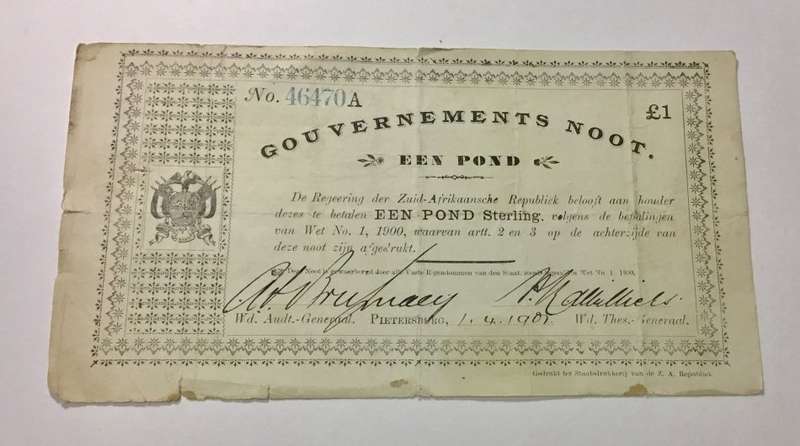 No. 46470A
£1
GOUVERNEMENTS NOOT.
EEN POND
De Regeering der Zuid-Afrikaansche Republiek belooft aan houder
dezes te betalen EEN POND Sterling, volgens de bepalingen
van Wet No. 1, 1900, waarvan artt. 2 en 3 op de achterzijde van
deze noot zijn afgedrukt.
Deze Noot is gewaarborgd door alle Vaste Eigendommen van den Staat Wet No. 1 1900.
Wd. Audt.-Generaal. PIETERSBURG, 1.4.1901. Wd. Thes.-Generaal.
Gedrukt ter Staatsdrukkerij van de Z. A. Republiek